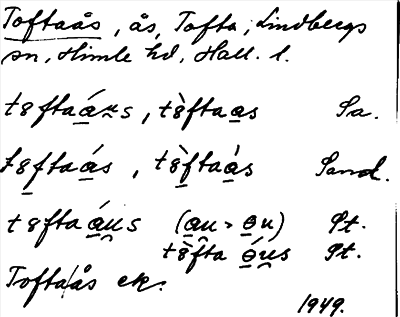 Toftaås, ås, Tofta, Lindbergs
sn, Himle hd, Hall. l.
tȣftaa̱ʑs, tȣ̀fta̱s Sa.
tȣ̱fta̱ás, tȣ̱̀fta̱às Sand.
tȣftaá̱u̯s (a̱u̯ > ɵ̱u) Pt.
tȣ̀fta ɵ̱́u̯s Pt.
Tofta/ås ek.
1949.